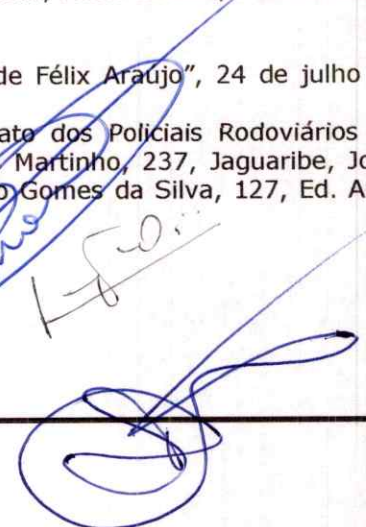 de Félix Araújo”, 24 de julho
ato dos Policiais Rodoviários
Martinho, 237, Jaguaribe, Jo
o Gomes da Silva, 127, Ed. A